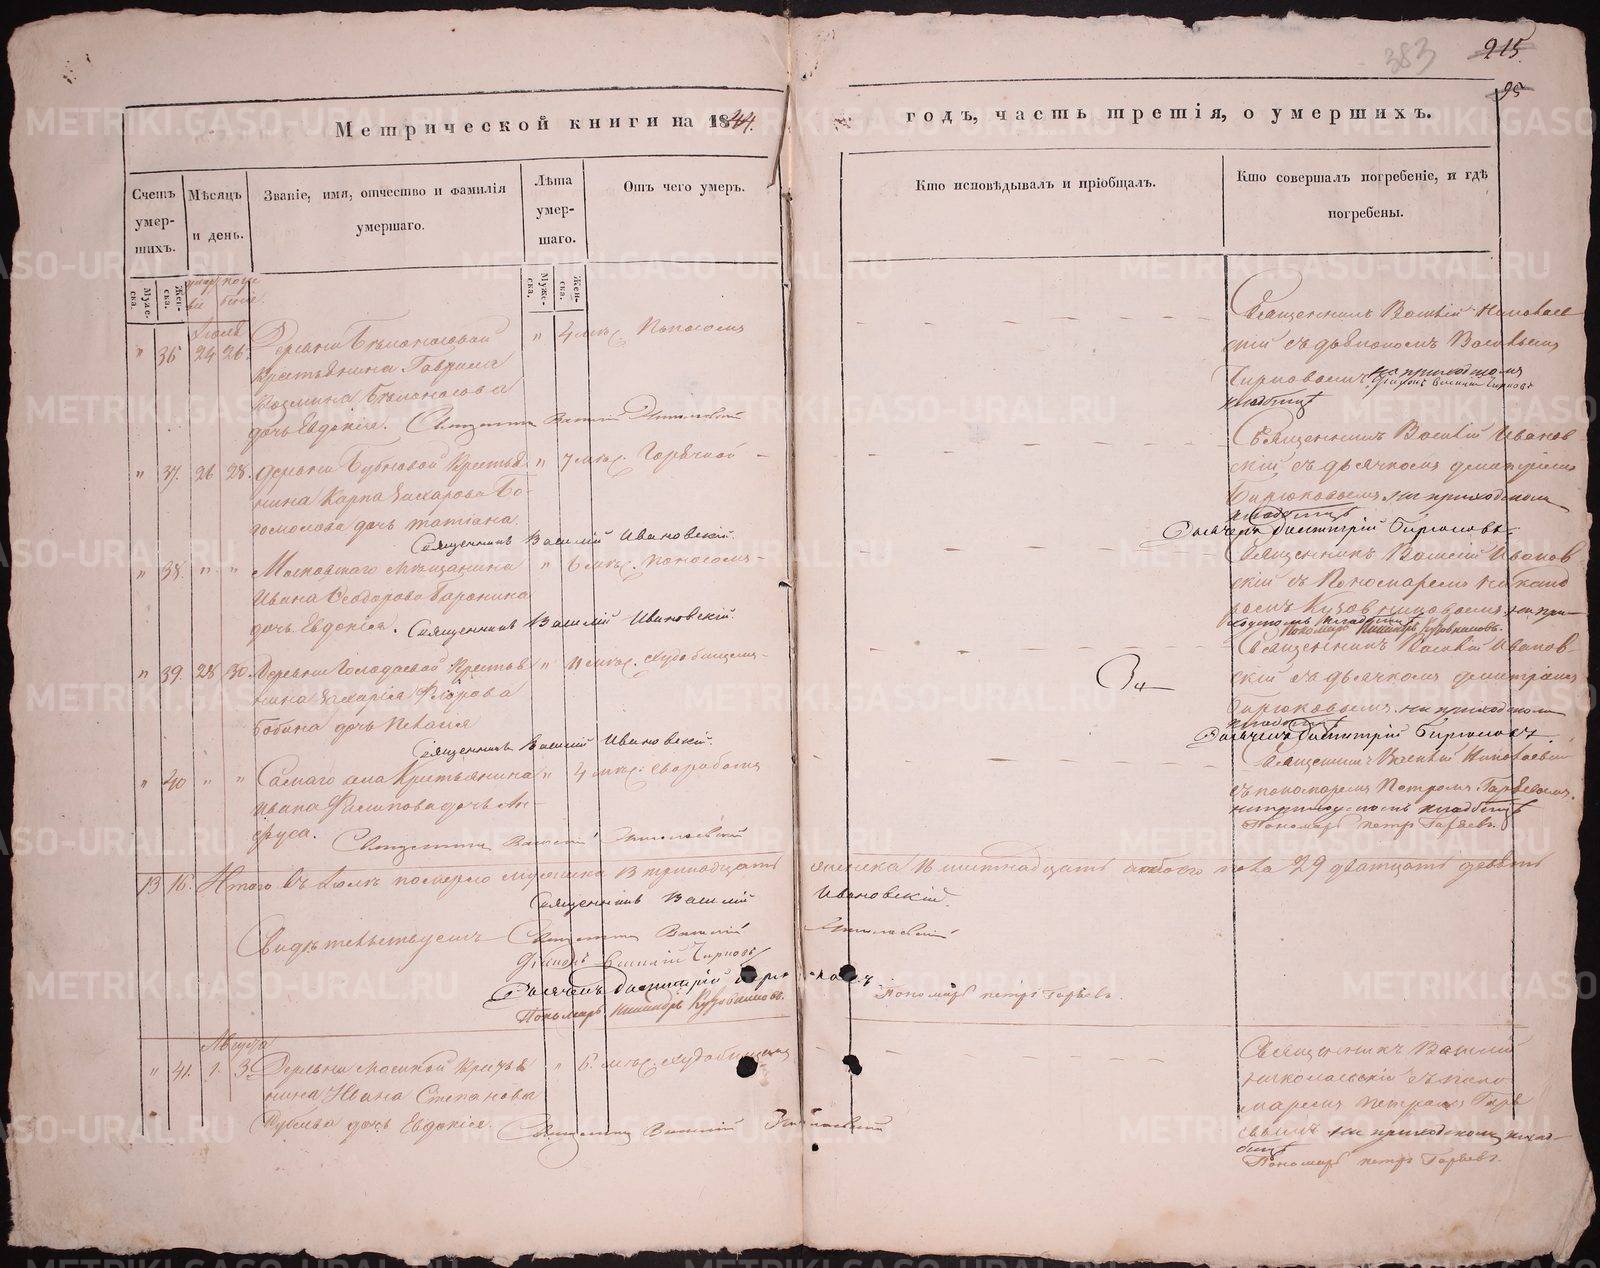 383
215.
95
Метрической книги на 1844.
годъ, часть третія, о умершихъ.
Счетъ умер-шихъ.
Мѣсяцъ и день.
Званіе, имя, отчество и фамилія умершаго.
Лѣта умер-шаго.
Отъ чего умеръ.
Кто исповѣдывалъ и пріобщалъ.
Кто совершалъ погребеніе, и гдѣ погребены.
Муже-ска.
Жен-ска.
Муже-ска.
Жен-ска.
Іюль
" 36 24 26.
Деревни
Крестьянина Гаврила
дочь Евдокія. Священникъ Василій Николаевскій
" 4 мѣс. Поносомъ
Священникъ Василій Николаев
скій съ діакономъ Василіемъ
Чирковымъ на приходскомъ
Діаконъ Василій Чирковъ
кладбищѣ
" 37. 26 28. Деревни Бубновой Крестья
нина Карпа Захарова Бо
домолова дочь Татіана.
Священникъ Василій Ивановскій.
" 7 мѣс. Горячкой -
Священникъ Василій Иванов
скій съ дьячкомъ Димитріемъ
Бирюковымъ на приходскомъ
кладбищѣ
Дьячекъ Димитрій Бирюковъ.
" 38. " " Московскаго Мѣщанина
Ивана Ѳеодорова Баронина
дочь Евдокія. Священникъ Василій Ивановскій.
" 6 мѣс. поносомъ -
Священникъ Василій Иванов
скій съ Пономаремъ Никанд
ромъ Кузовниковымъ на при-
ходскомъ кладбищѣ
Пономарь Никандръ Кузовниковъ.
" 39. 28 30. Деревни Голодаевой Крестья
нина Захарія
Бабина дочь Пелагія
Священникъ Василій Ивановскій.
" 11 мѣс. худобищемъ -
Священникъ Василій Иванов-
скій съ дьячкомъ Димитріемъ
Бирюковымъ на приходскомъ
кладбищѣ
Дьячекъ Димитрій Бирюковъ.
" 40 " " Самаго села Крестьянина
Ивана Филипова дочь Ан-
фуса. Священникъ Василій Николаевскій
" 4 мѣс.
Священникъ Василій Николаевскій
съ пономаремъ Петромъ Гаряевымъ.
на приходскомъ кладбищѣ
Пономарь петръ Гаряевъ.
13 16. Итого въ Іюлѣ померло мужеска 13 тринадцать
женска 16 шестнадцать обоего пола 29 двадцать девять
Священникъ Василій Ивановскій.
Свидѣтельствуемъ Священникъ Василій Николаевскій
Діаконъ Василій Чирковъ
Дьячекъ Димитрій Бирюковъ
Пономарь Никандръ Кузовниковъ.
Пономарь петръ Гаряевъ.
Августа
" 41. 1. 3. Деревни Крестья
нина Ивана Степанова
дочь Евдокія. Священникъ Василій Николаевскій
" 6. мѣс. худобищемъ
Священникъ Василій
Николаевскій съ поно
маремъ Петромъ Гаря
евымъ на приходскомъ клад-
бищѣ
Пономарь петръ Гаряевъ.
METRIKI.GASO-URAL.RU